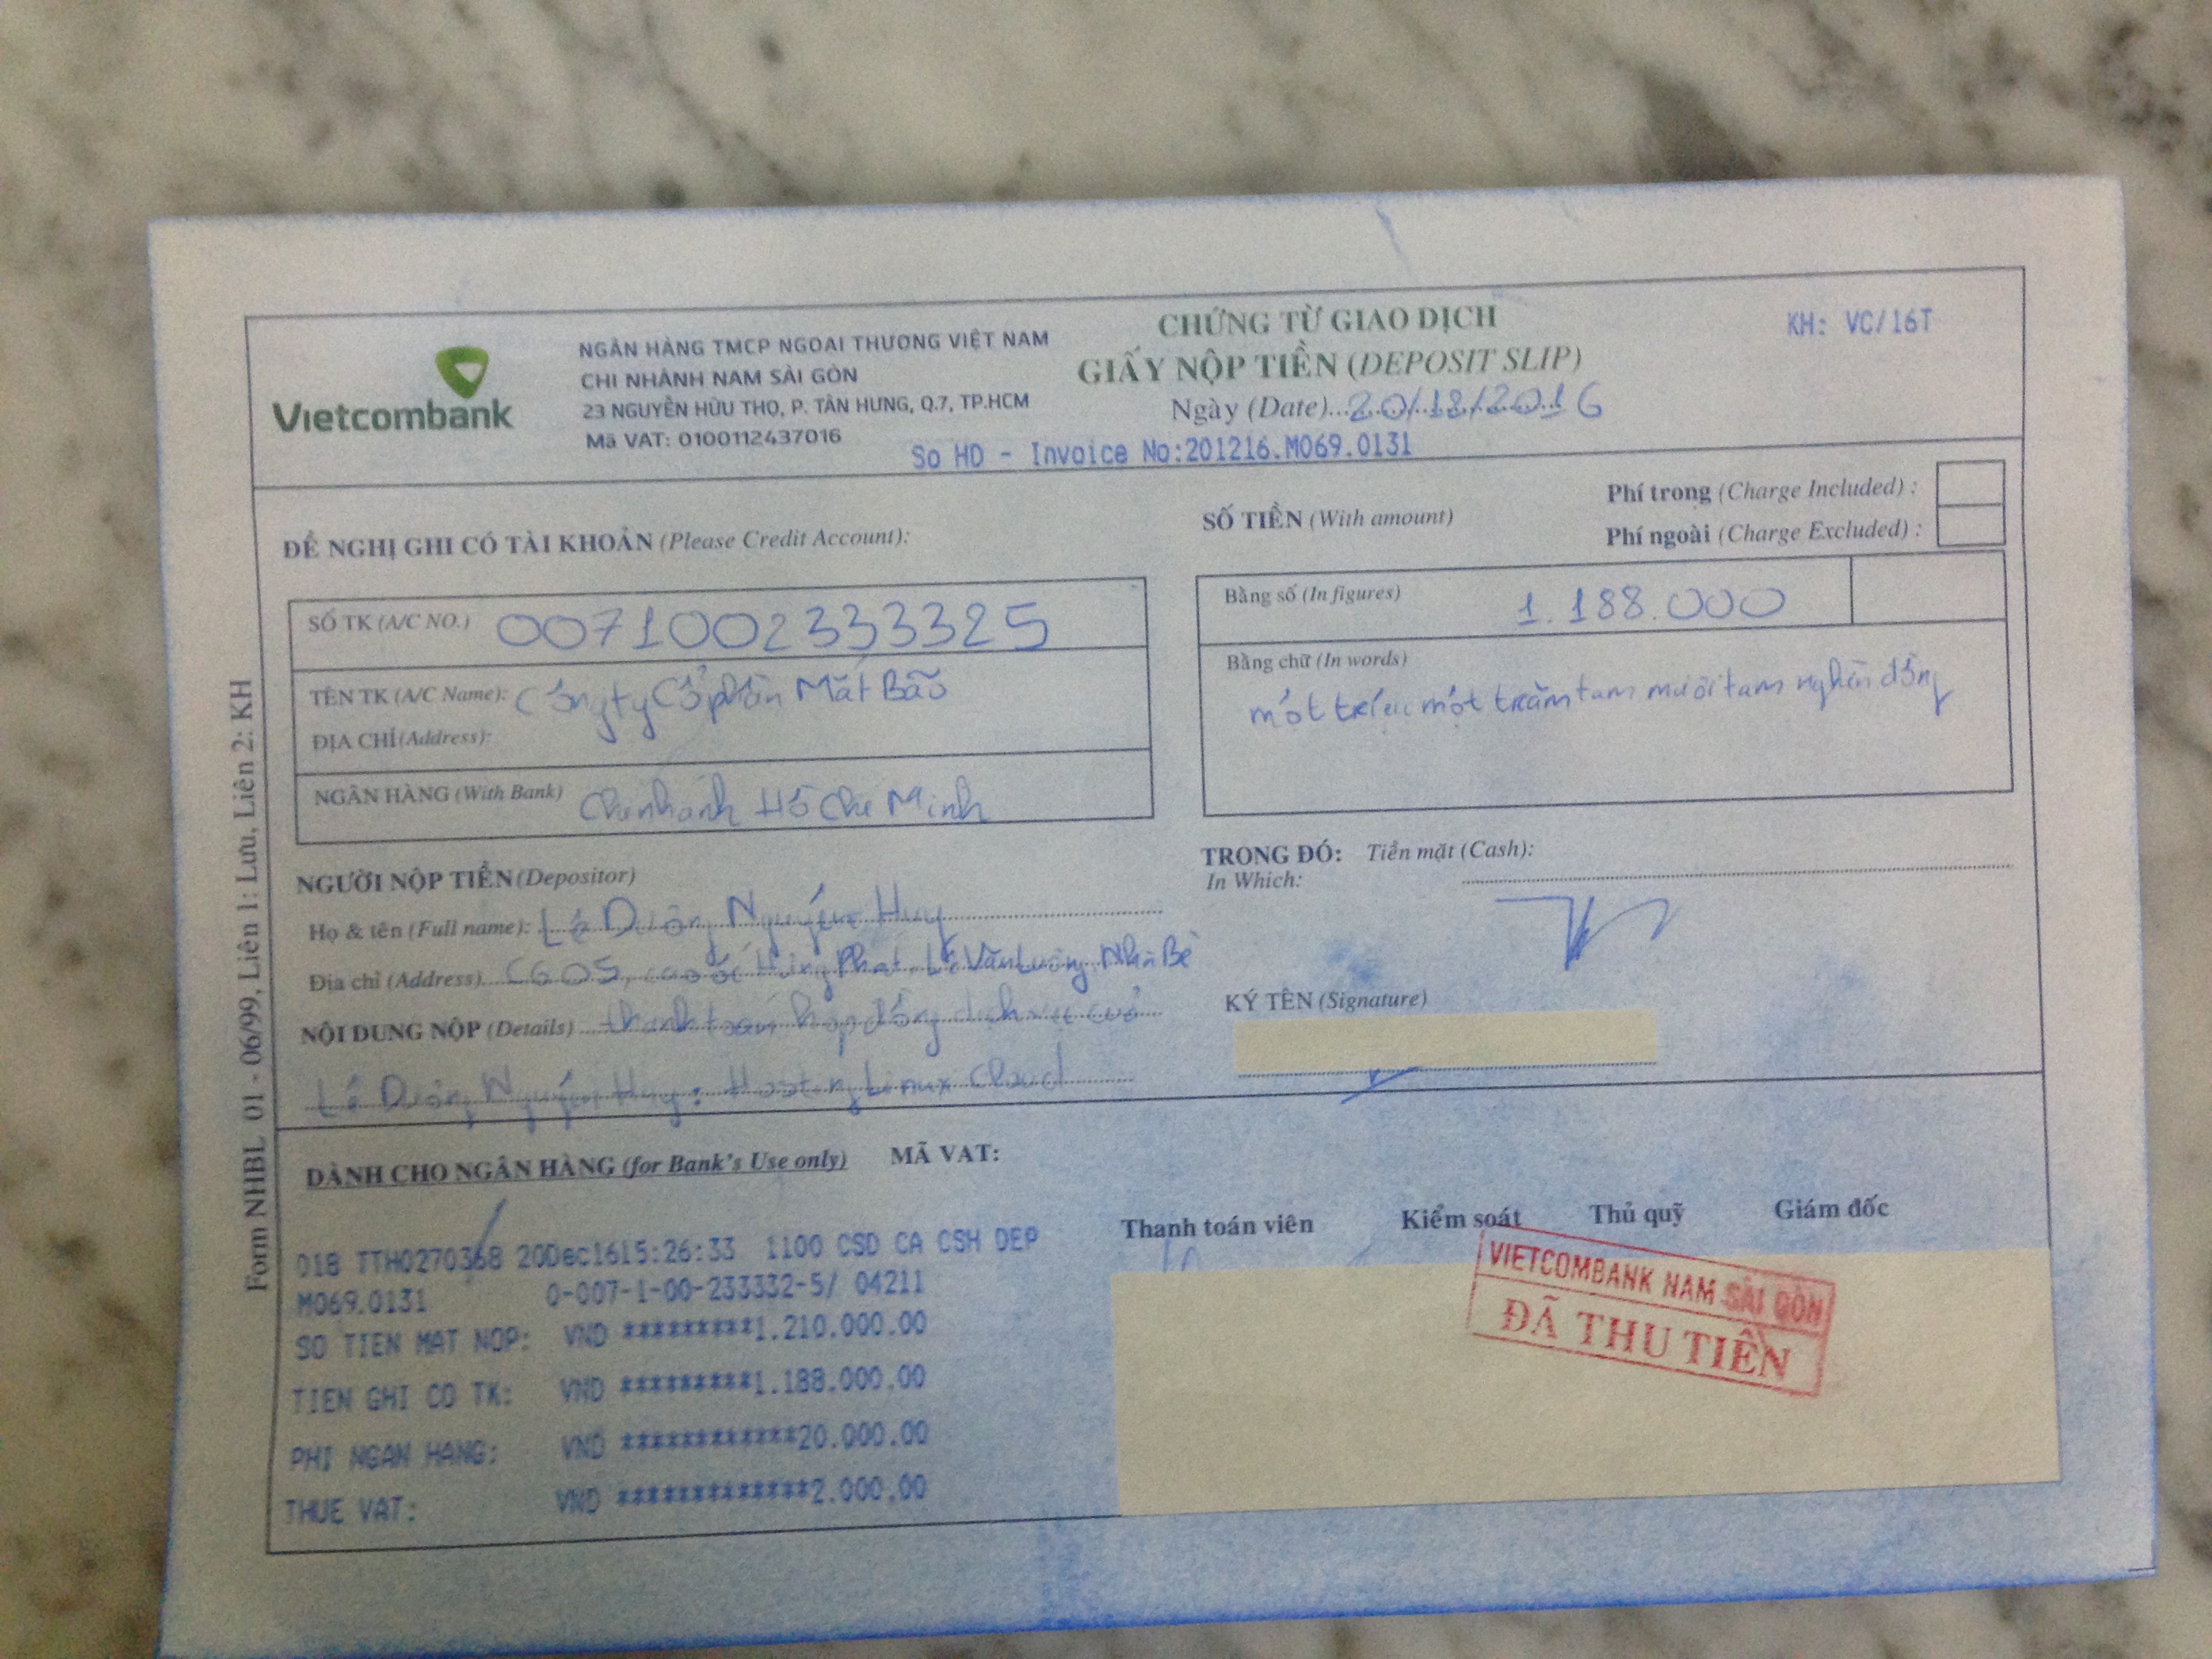 Vietcombank
NGÂN HÀNG TMCP NGOẠI THƯƠNG VIỆT NAM
CHI NHÁNH NAM SÀI GÒN
23 NGUYỄN HỮU THỌ, P. TÂN HƯNG, Q.7, TP.HCM
Mã VAT: 0100112437016
CHỨNG TỪ GIAO DỊCH
GIẤY NỘP TIỀN (DEPOSIT SLIP)
Ngày (Date)
KH: VC/16T
So HD - Invoice No:201216.M069.0131
ĐỀ NGHỊ GHI CÓ TÀI KHOẢN (Please Credit Account):
SỐ TIỀN (With amount)
Phí trong (Charge Included) :
Phí ngoài (Charge Excluded) :
SỐ TK (A/C NO.) 0071002333325
TÊN TK (A/C Name): Công ty Cổ phần Mắt Bão
ĐỊA CHỈ (Address):
NGÂN HÀNG (With Bank) Chi nhánh Hồ Chí Minh
Bằng số (In figures) 1.188.000
Bằng chữ (In words)
một triệu một trăm tam mươi tam nghìn đồng
NGƯỜI NỘP TIỀN (Depositor)
Họ & tên (Full name): Lê Duộn Nguyễn Huy
Địa chỉ (Address) C605, cao ốc Hưng Phát Lê Văn Lương Nhà Bè
NỘI DUNG NỘP (Details) thanh toán hợp đồng dịch vụ của
Lê Duộn Nguyễn Huy: Hosting Linux Cloud
TRONG ĐÓ: Tiền mặt (Cash):
In Which:
KÝ TÊN (Signature)
DÀNH CHO NGÂN HÀNG (for Bank's Use only) MÃ VAT:
018 TTH0270368 20Dec1615:26:33 1100 CSD CA CSH DEP
M069.0131 0-007-1-00-233332-5/ 04211
SO TIEN MAT NOP: VND *********1.210.000.00
TIEN GHI CO TK: VND *********1.188.000.00
PHI NGAN HANG: VND ***********20.000.00
THUE VAT: VND ************2.000.00
Thanh toán viên Kiểm soát Thủ quỹ Giám đốc
VIETCOMBANK NAM SÀI GÒN
ĐÃ THU TIỀN
Form NHBL 01 - 06/99, Liên 1: Lưu, Liên 2: KH